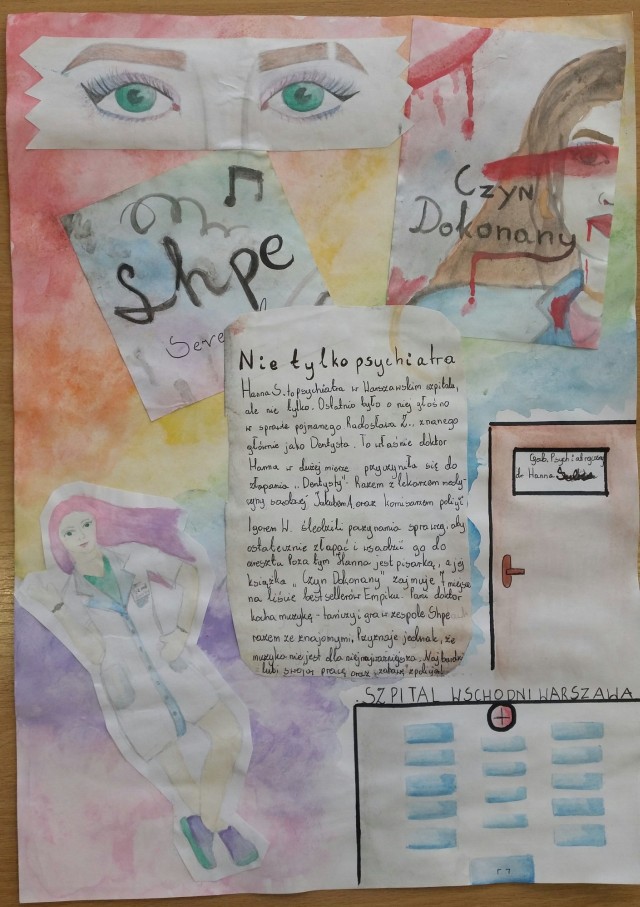 Czyn
Dokonany
Shpe
Seve
Nie tylko psychiatra
Hanna S. to psychiatra w Warszawskim szpitalu,
ale nie tylko. Ostatnio było o niej głośno
w sprawie pojmanego Radosława Z., znanego
głównie jako Dentysta. To właśnie doktor
Hanna w dużej mierze przyczyniła się do
złapania ,,Dentysty". Razem z lekarzem medy-
cyny sądowej Jakubem A. oraz komisarzem policji,
Igorem W. śledzili poczynania sprawcy, aby
ostatecznie złapać i wsadzić go do
aresztu. Poza tym Hanna jest pisarką, a jej
książka ,,Czyn Dokonany" zajmuje 7 miejsce
na liście bestsellerów Empiku. Pani doktor
kocha muzykę - tańczy i gra w zespole Shpe
razem ze znajomymi. Przyznaje jednak, że
muzyka nie jest dla niej najważniejsza. Najbardziej
lubi swoją pracę oraz z policją!
dr Hanna
SZPITAL WSCHODNI WARSZAWA